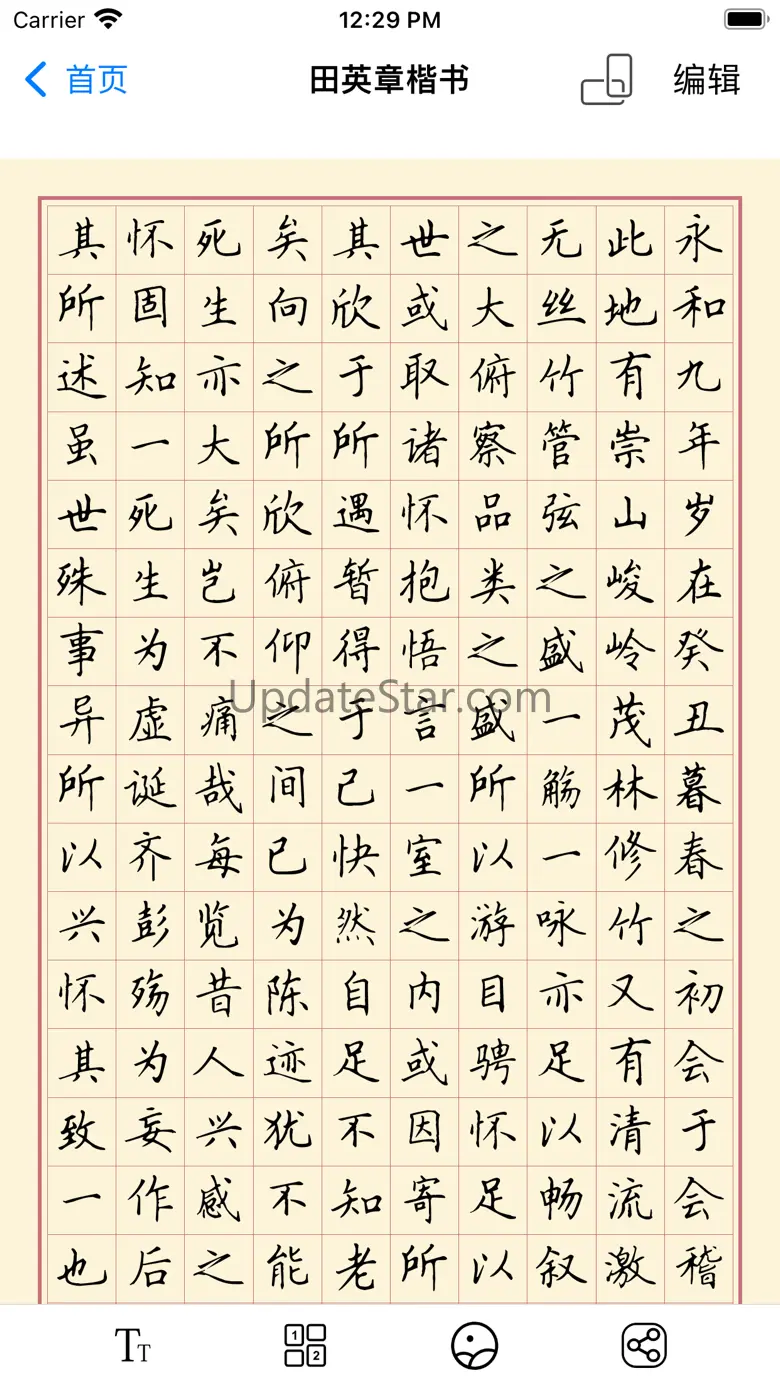 Carrier 12:29 PM
首页 田英章楷书 编辑
永和九年岁在癸丑暮春之初会于会稽
此地有崇山峻岭茂林修竹又有清流激
无丝竹管弦之盛一觞一咏亦足以畅叙
之大俯察品类之盛所以游目骋怀足以
世或取诸怀抱悟言一室之内或因寄所
其欣于所遇暂得于己快然自足不知老
矣向之所欣俯仰之间已为陈迹犹不能
死生亦大矣岂不痛哉每览昔人兴感之
怀固知一死生为虚诞齐彭殇为妄作后
其所述虽世殊事异所以兴怀其致一也
UpdateStar.com
TT
1
2